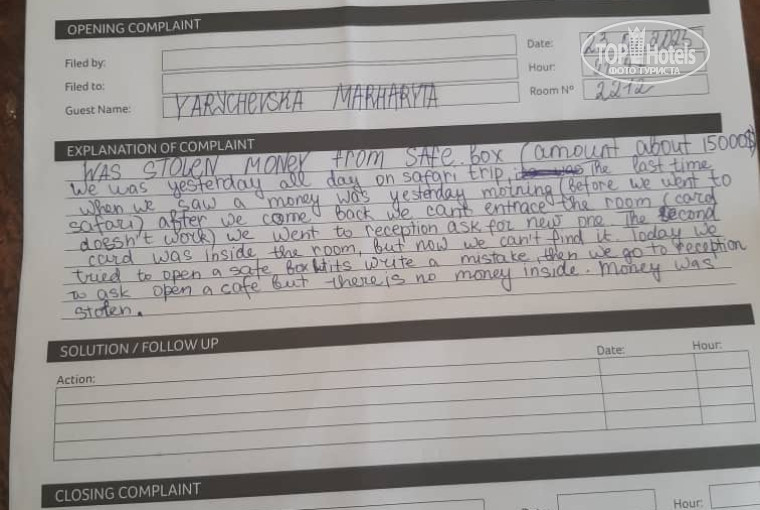 OPENING COMPLAINT
Filed by:
Date: 23 2023
Filed to:
Hour:
Guest Name: YARYCHEVSKA MARHARYTA
Room Nº 2212
TOP Hotels
ФОТО ТУРИСТА
EXPLANATION OF COMPLAINT
WAS STOLEN MONEY from SAFE BOX (amount about 15000$)
We was yesterday all day on safari trip, The last time
when we saw a money was yesterday morning (before we went to
safari) after we come back we cant entrace the room (card
doesn't work) we went to reception ask for new one. The second
card was inside the room, but now we can't find it. Today we
tried to open a safe box its write a mistake, then we go to reception
to ask open a cafe but there is no money inside. Money was
stolen.
SOLUTION / FOLLOW UP
Action:
Date:
Hour:
CLOSING COMPLAINT
Hour: